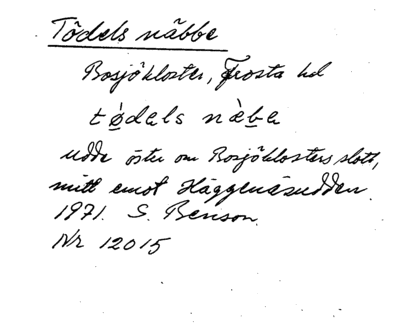 Tödels näbbe
Bosjökloster, Frosta hd
tø̀dels nɛ̀be
udde öster om Bosjöklosters slott,
mitt emot Häggenäsudden.
1971. S. Benson.
Nr 12015